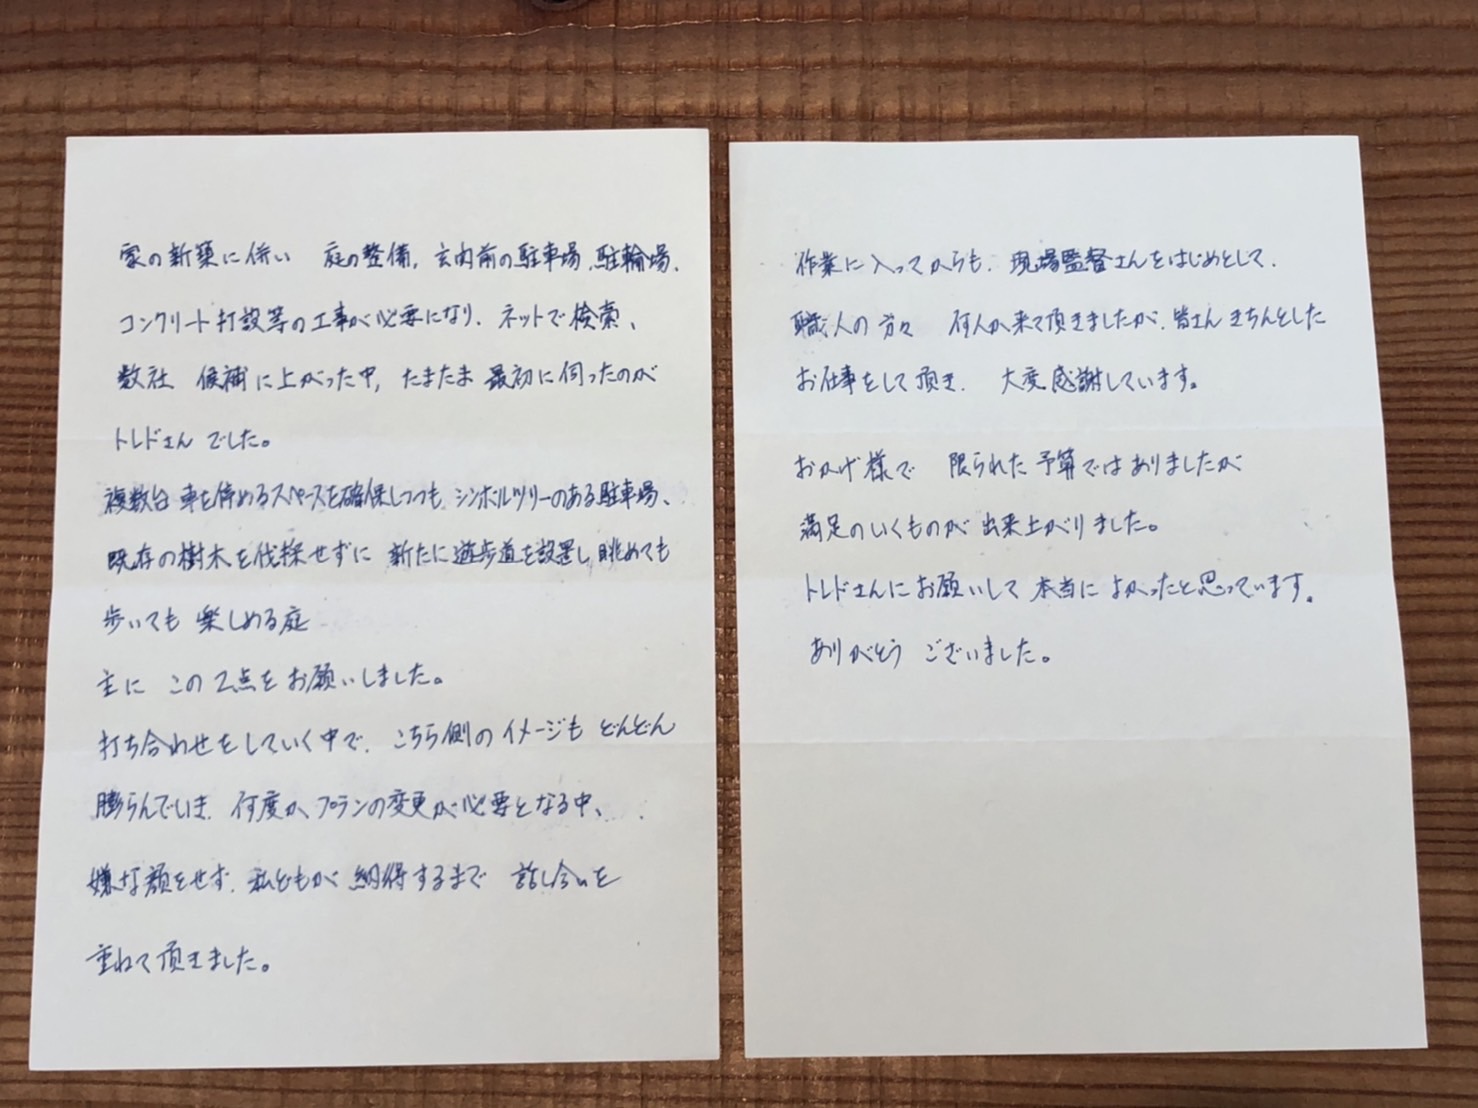 家の新築に併い 庭の整備、玄関前の駐車場、駐輪場、
コンクリート打設等の工事が必要になり、ネットで検索、
数社 候補に上がった中、たまたま 最初に伺ったのが
トレドさん でした。
複数台 車を停めるスペースを確保しつつも、シンボルツリーのある駐車場、
既存の樹木を伐採せずに 新たに遊歩道を設置し眺めても
歩いても 楽しめる庭
主に この2点を お願いしました。
打ち合わせをしていく中で、こちら側のイメージも どんどん
膨らんでいき、何度か、プランの変更が必要となる中、
嫌な顔をせず、私どもが 納得するまで 話し合いを
重ねて頂きました。
作業に入ってからも、現場監督さんをはじめとして、
職人の方々 何人か来て頂きましたが、皆さん きちんとした
お仕事をして頂き、 大変感謝しています。
おかげ様で 限られた予算ではありましたが
満足のいくものが 出来上がりました。
トレドさんにお願いして 本当に よかったと思っています。
ありがとう ございました。